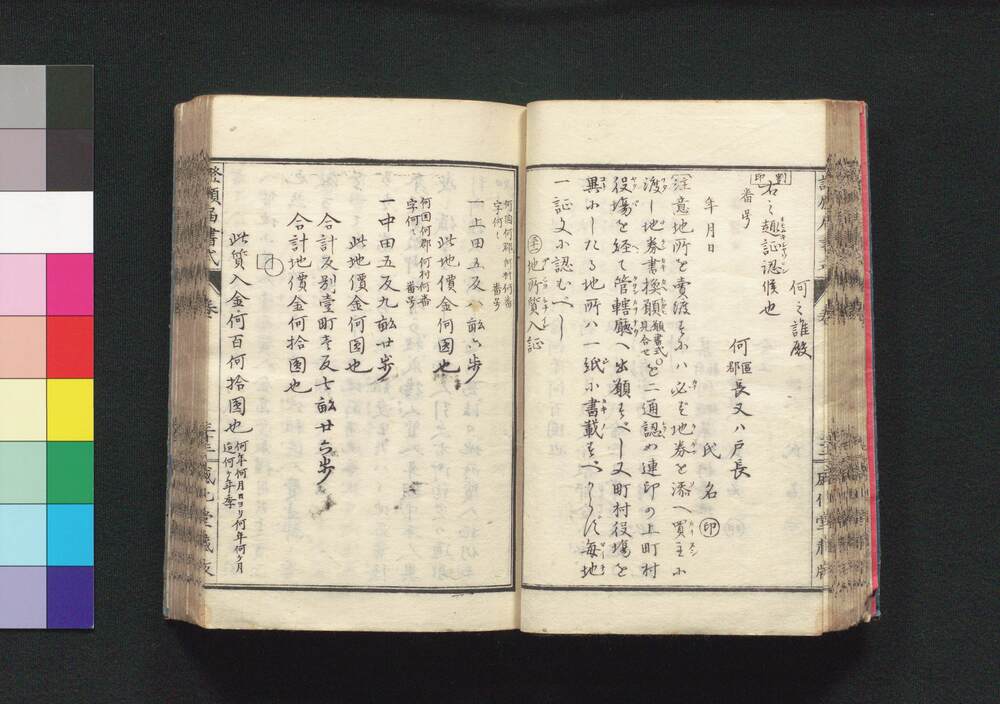 何之誰殿
割印
番号
右之趣証認候也
年月日
何
區
郡
長又ハ戸長
氏名 印
注意地所を賣渡そ小ハ必ず地券を添へ買主小
渡し地券書換願
願書式ノ
見合セ
を二通認め連印の上町村
役塲を経て管轄廳へ出願そべし又町村役塲を
異小したる地所ハ一紙小書載そべからず毎地
一証文小認むべし
地所質入証
何国何郡何村何番
字何〻
番号
一上田五反
畝六歩
此地價金何圓也
何国何郡何村何番
字何〻
番号
一中田五反九畝廿歩
此地價金何圓也
合計反別壹町壱反七畝廿六歩
合計地價金何拾圓也
此質入金何百何拾圓也
何年何月ヨリ何年何ケ月
迄何ケ年季
證願届書式
卷
盛化堂藏版